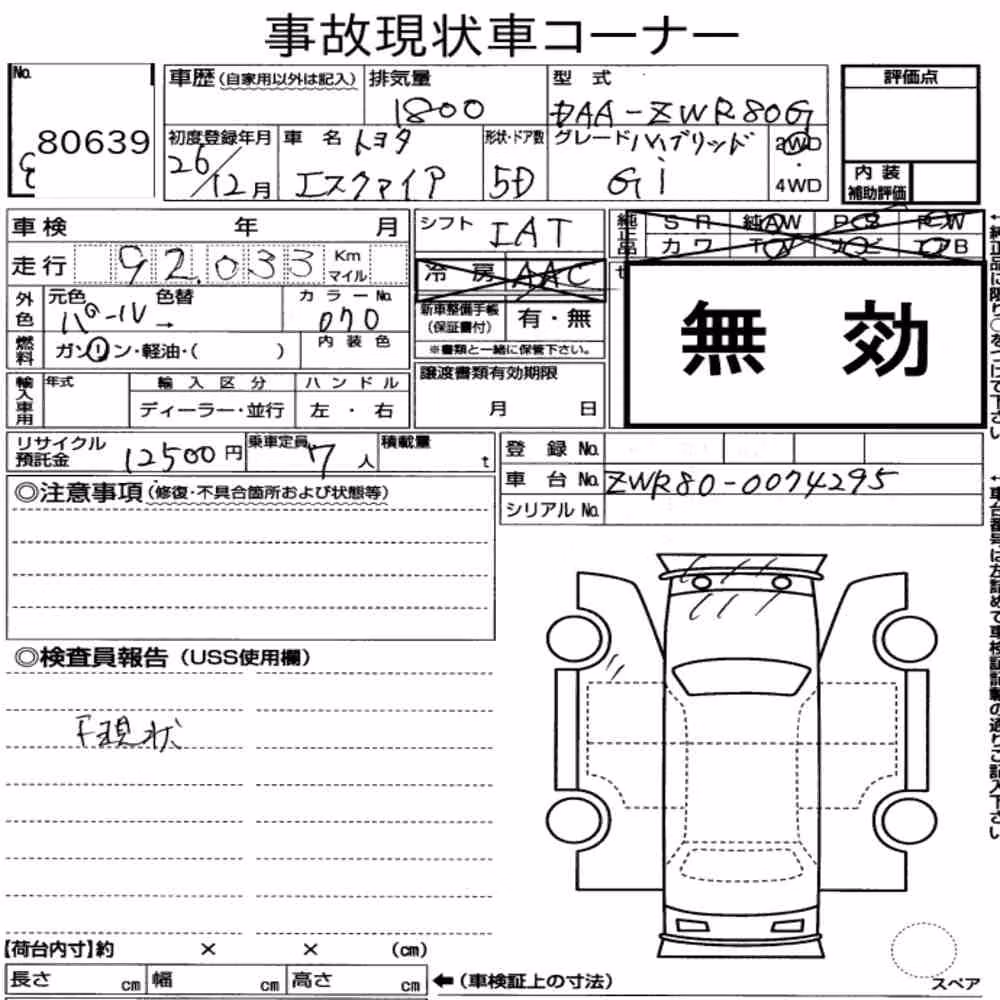 事故現状車コーナー
No. 80639
車歴 (自家用以外は記入)
排気量 1800
型式 DAA-ZWR80G
評価点
初度登録年月 26/12月
車名 トヨタ エスクァイア
形状・ドア数 5D
グレード ハイブリッド Gi
2WD・4WD
内装補助評価
車検 年 月
シフト IAT
純正品 SR 純AW PS PW
カワ TV ナビ エアB
走行 92,033 Km マイル
冷房 AAC
外色 元色 パール 色替 →
カラーNo. 070
新車整備手帳(保証書付) 有・無
※書類と一緒に保管下さい。
無効
燃料 ガソリン・軽油・( )
内装色
輸入車用 年式 輸入区分 ハンドル
ディーラー・並行 左・右
譲渡書類有効期限
月 日
リサイクル預託金 12500円
乗車定員 7人
積載量 t
登録No.
車台No. ZWR80-0074295
シリアルNo.
◎注意事項(修復・不具合箇所および状態等)
◎検査員報告(USS使用欄)
F現状
【荷台内寸】約 × × (cm)
長さ cm 幅 cm 高さ cm
←(車検証上の寸法)
スペア
←純正品に限り○をつけて下さい
←車台番号は左詰めで車検証記載の通りご記入下さい